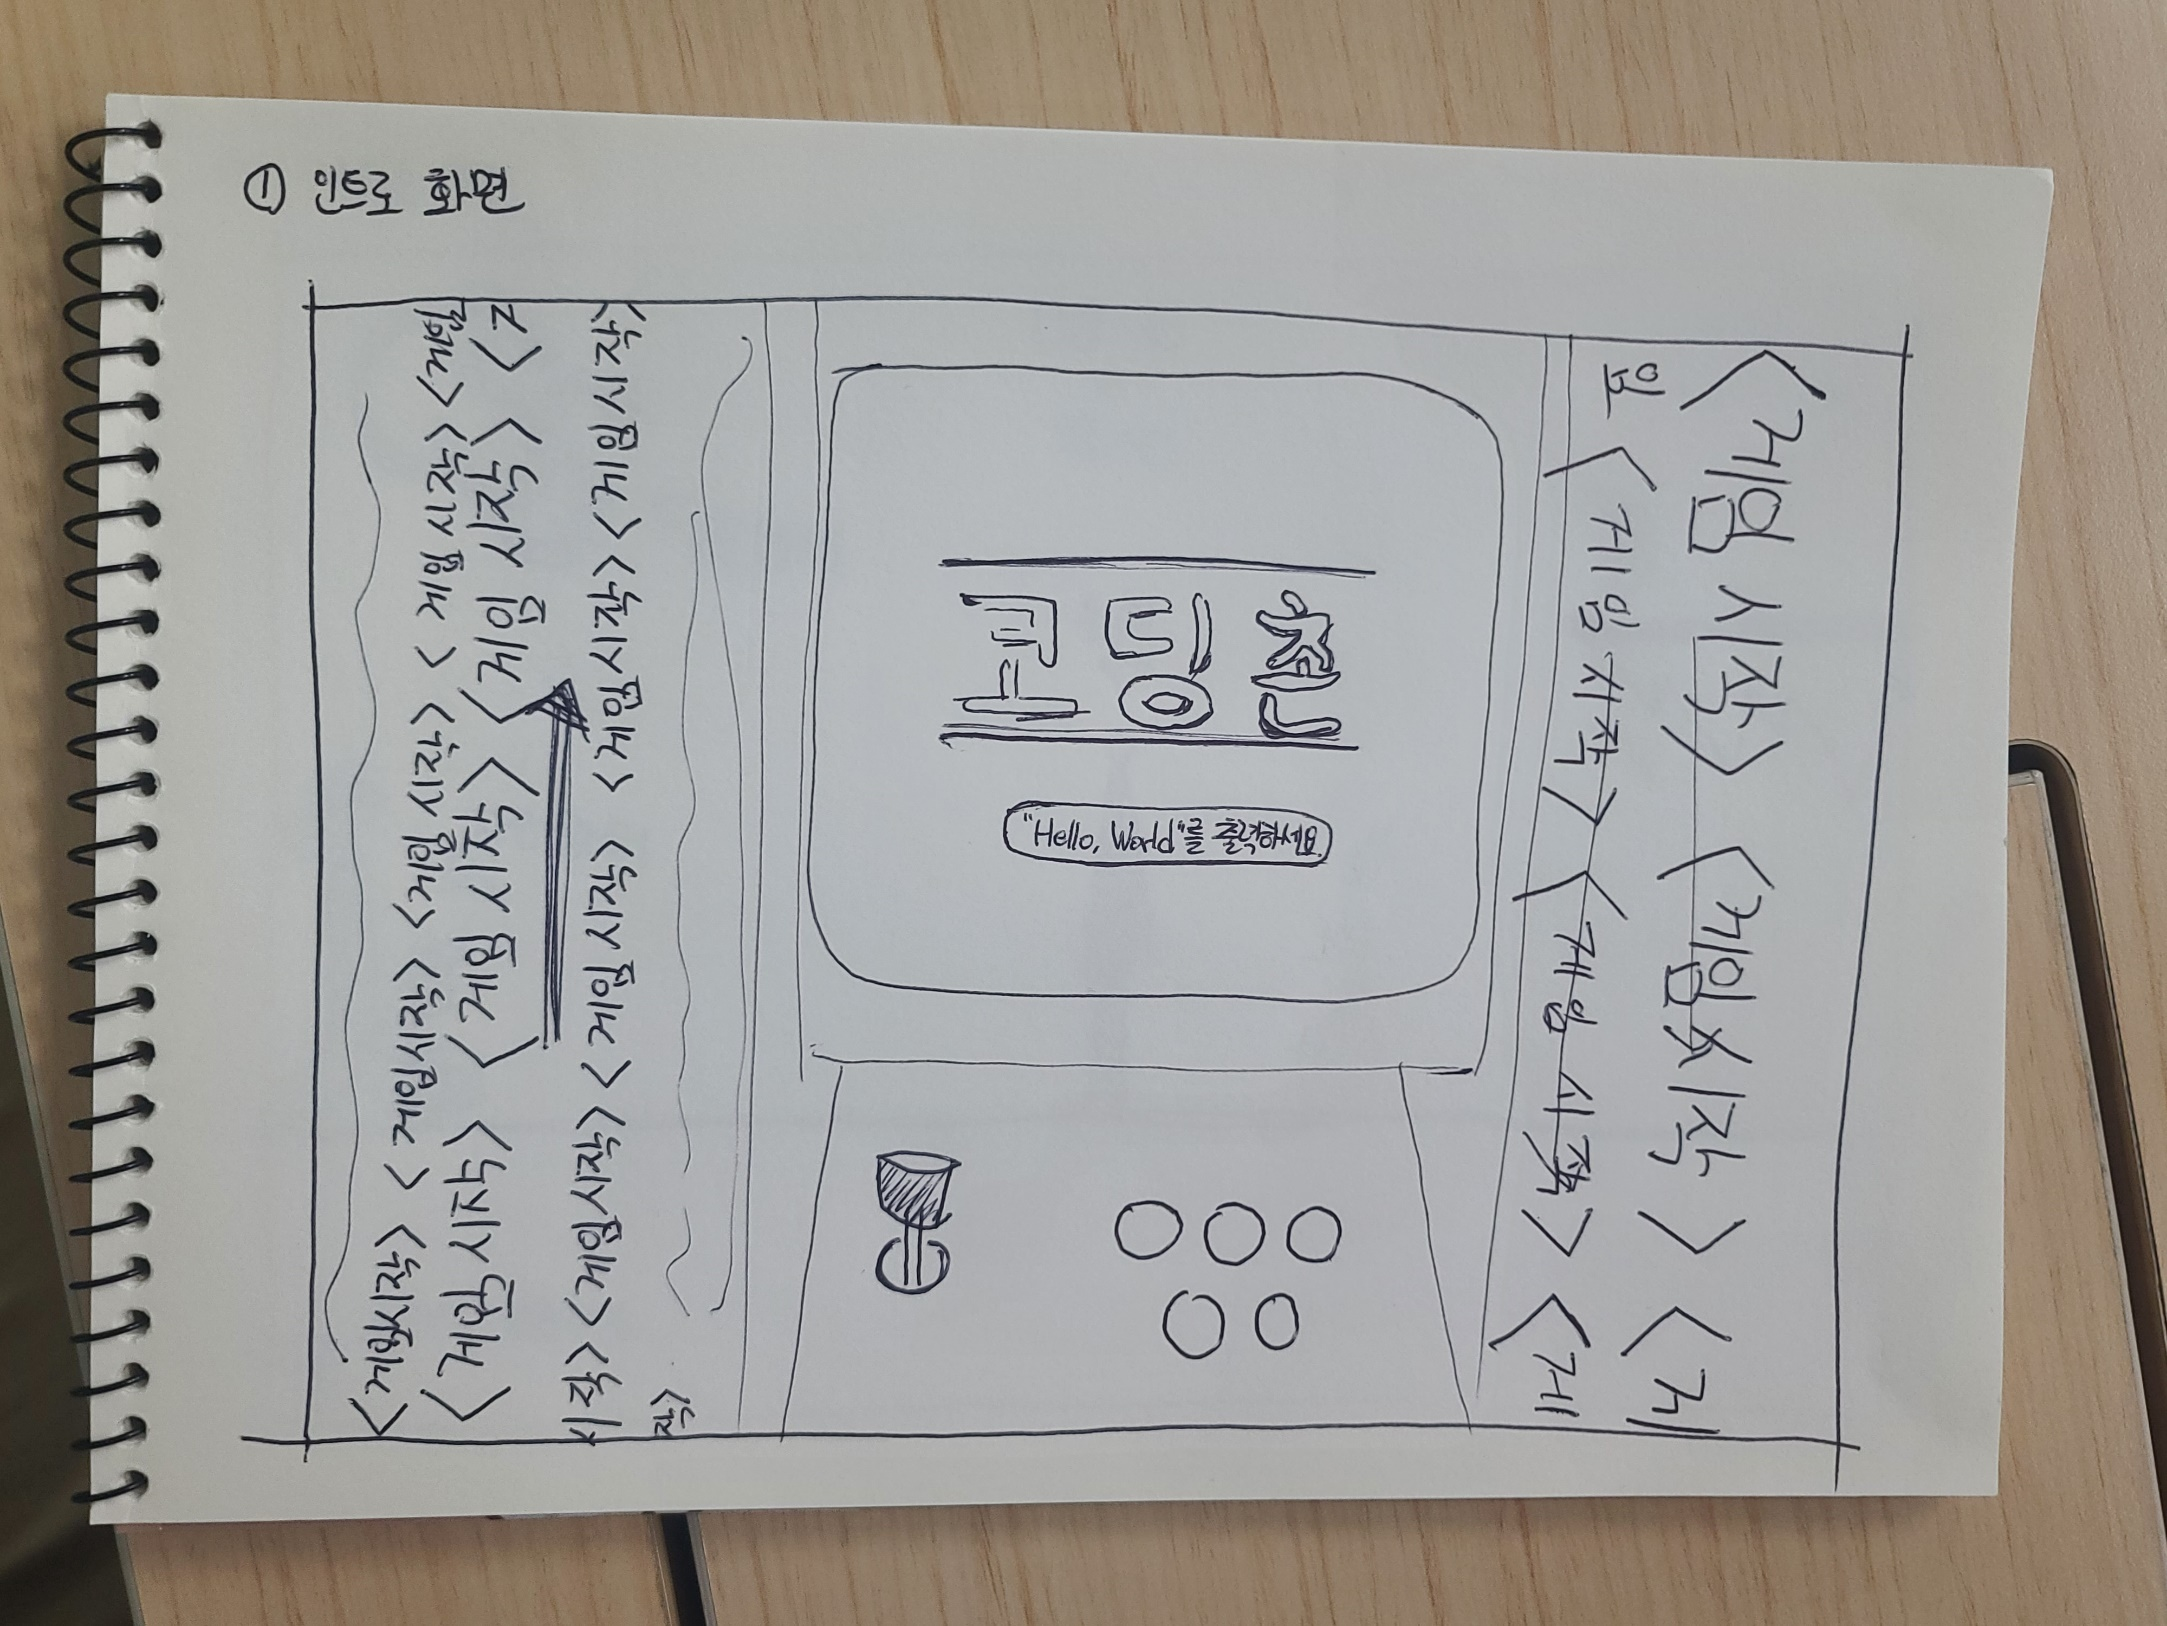 ① 인트로 화면
<게임시작> <게임시작> <게임 시작> <게임 시작> <게임
<게임 시작> <게임 시작> <게임 시작> <ㄱ
시작> <게임 시작> <게임 시작> <게임 시작> <게임 시작>
작>
코밍존
"Hello, World"를 출력하세요.
임 <게임 시작> <게임 시작> <게
<게임 시작> <게임 시작> <게